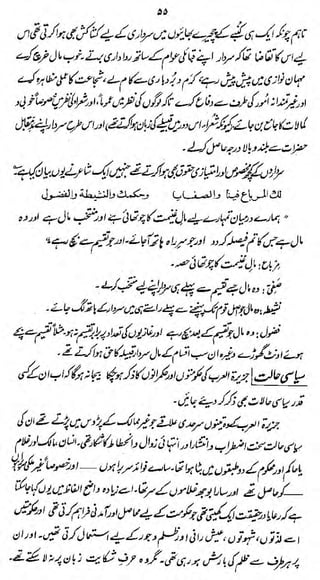 ۵۵
تاہم چونکہ ایک ہی کنبے کے چچیرے بھائیوں میں سرداری کے لیے کشاکش بھی ہوا کرتی تھی اس لیے
اس کا تقاضا تھا کہ سردار اپنے قبائلی عوام کے ساتھ رواداری برتے۔ خوب مال خرچ کرے
مہمان نوازی میں پیش پیش رہے، کرم و بردباری سے کام لے، شجاعت کا عملی مظاہرہ کرے
اور غیر تمندانہ امور کی طرف سے دفاع کرے تاکہ لوگوں کی نظر میں عموماً، اور شعراء کی نظر میں خصوصاً خوبی و
کمالات کا جامع بن جائے (کیونکہ شعراء اس دور میں قبیلے کی زبان ہوا کرتے تھے) اور اس طرح سردار اپنے مدِّمقابل
حضرات سے بلند و بالا درجہ حاصل کرلے۔
سرداروں کے کچھ مخصوص اور امتیازی حقوق بھی ہوا کرتے تھے جنہیں ایک شاعر نے یوں بیان کیا ہے ۔
لك المرباع فينا والصفايا وحكمك والنشيطة والفضول
"ہمارے درمیان تمہارے لیے مال غنیمت کا چوتھائی ہے اور منتخب مال ہے اور وہ
مال ہے جس کا تم فیصلہ کر دو اور جو سر راہ ہاتھ آجائے۔ اور جو تقسیم سے بچ رہے"
مرباع: مالِ غنیمت کا چوتھائی حصہ۔
صفی: وہ مال جسے تقسیم سے پہلے ہی سردار اپنے لیے منتخب کرلے۔
نشیطہ: وہ مال جو اصل قوم تک پہنچنے سے پہلے راستے ہی میں سردار کے ہاتھ لگ جائے۔
فضول: وہ مال جو تقسیم کے بعد بچ رہے اور غازیوں کی تعداد پر برابر تقسیم نہ ہو۔ مثلاً تقسیم سے بچے
ہوئے اونٹ گھوڑے وغیرہ ان سب اقسام کے مال سردارِ قبیلہ کا حق ہوا کرتے تھے۔
سیاسی حالت جزیرۃ العرب کی حکومتوں اور حکمرانوں کا ذکر ہوچکا بیجا نہ ہوگا کہ اب ان کے کسی
قدر سیاسی حالات بھی ذکر کر دیئے جائیں۔
جزیرۃ العرب کے وہ تینوں سرحدی علاقے جو غیر ممالک کے پڑوس میں پڑتے تھے ان کی
سیاسی حالت سخت اضطراب و انتشار اور انتہائی زوال و انحطاط کا شکار تھی۔ انسان، مالک اور غلام
یا حاکم اور محکوم کے دو طبقوں میں بٹا ہوا تھا۔ سارے فوائد سربراہوں ــــ اور خصوصاً غیر ملکی سربراہوں ــــ
کو حاصل تھے اور سارا بوجھ غلاموں کے سر تھا۔ اسے زیادہ واضح الفاظ میں یوں کہا جاسکتا
ہے کہ رعایا درحقیقت ایک کھیتی تھی جو حکومت کے لیے محاصل اور آمدنی فراہم کرتی تھی اور حکومتیں
اسے لذتوں، شہوتوں، عیش رانی اور ظلم و جور کے لیے استعمال کرتی تھیں۔ اور ان پر
ہر طرف سے ظلم کی بارش ہو رہی تھی۔ مگر وہ حرفِ شکایت زبان پر نہ لا سکتے تھے۔